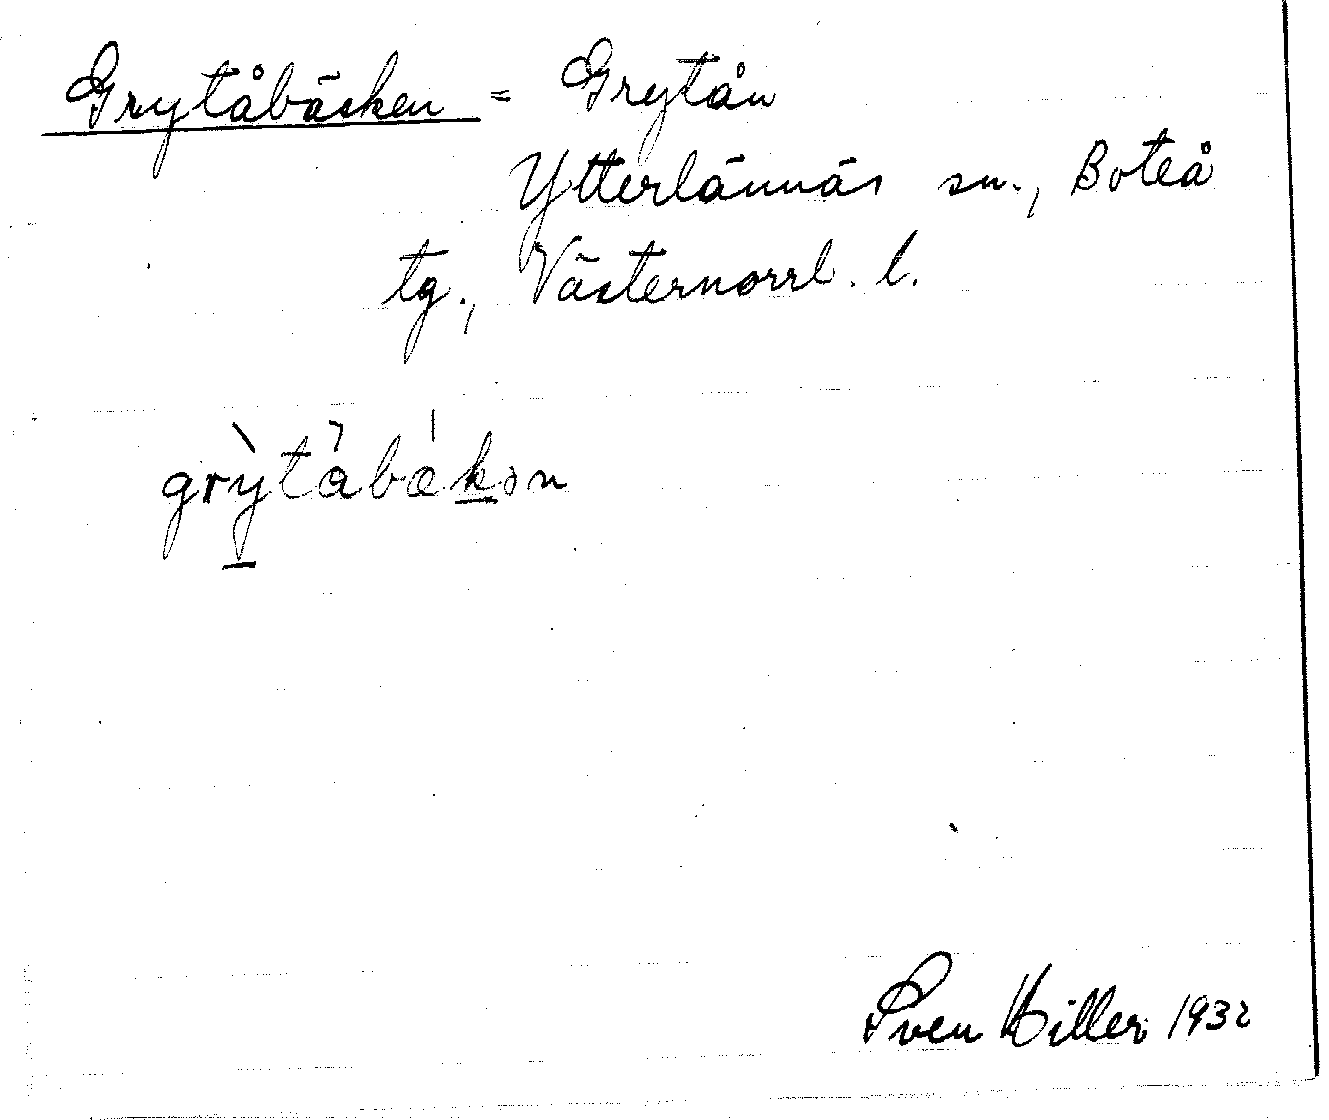 Grytåbäcken = Grytån
Ytterlännäs sn., Boteå
tg., Västernorrl. l.
grỳtåbækən
Sven Hiller 1932